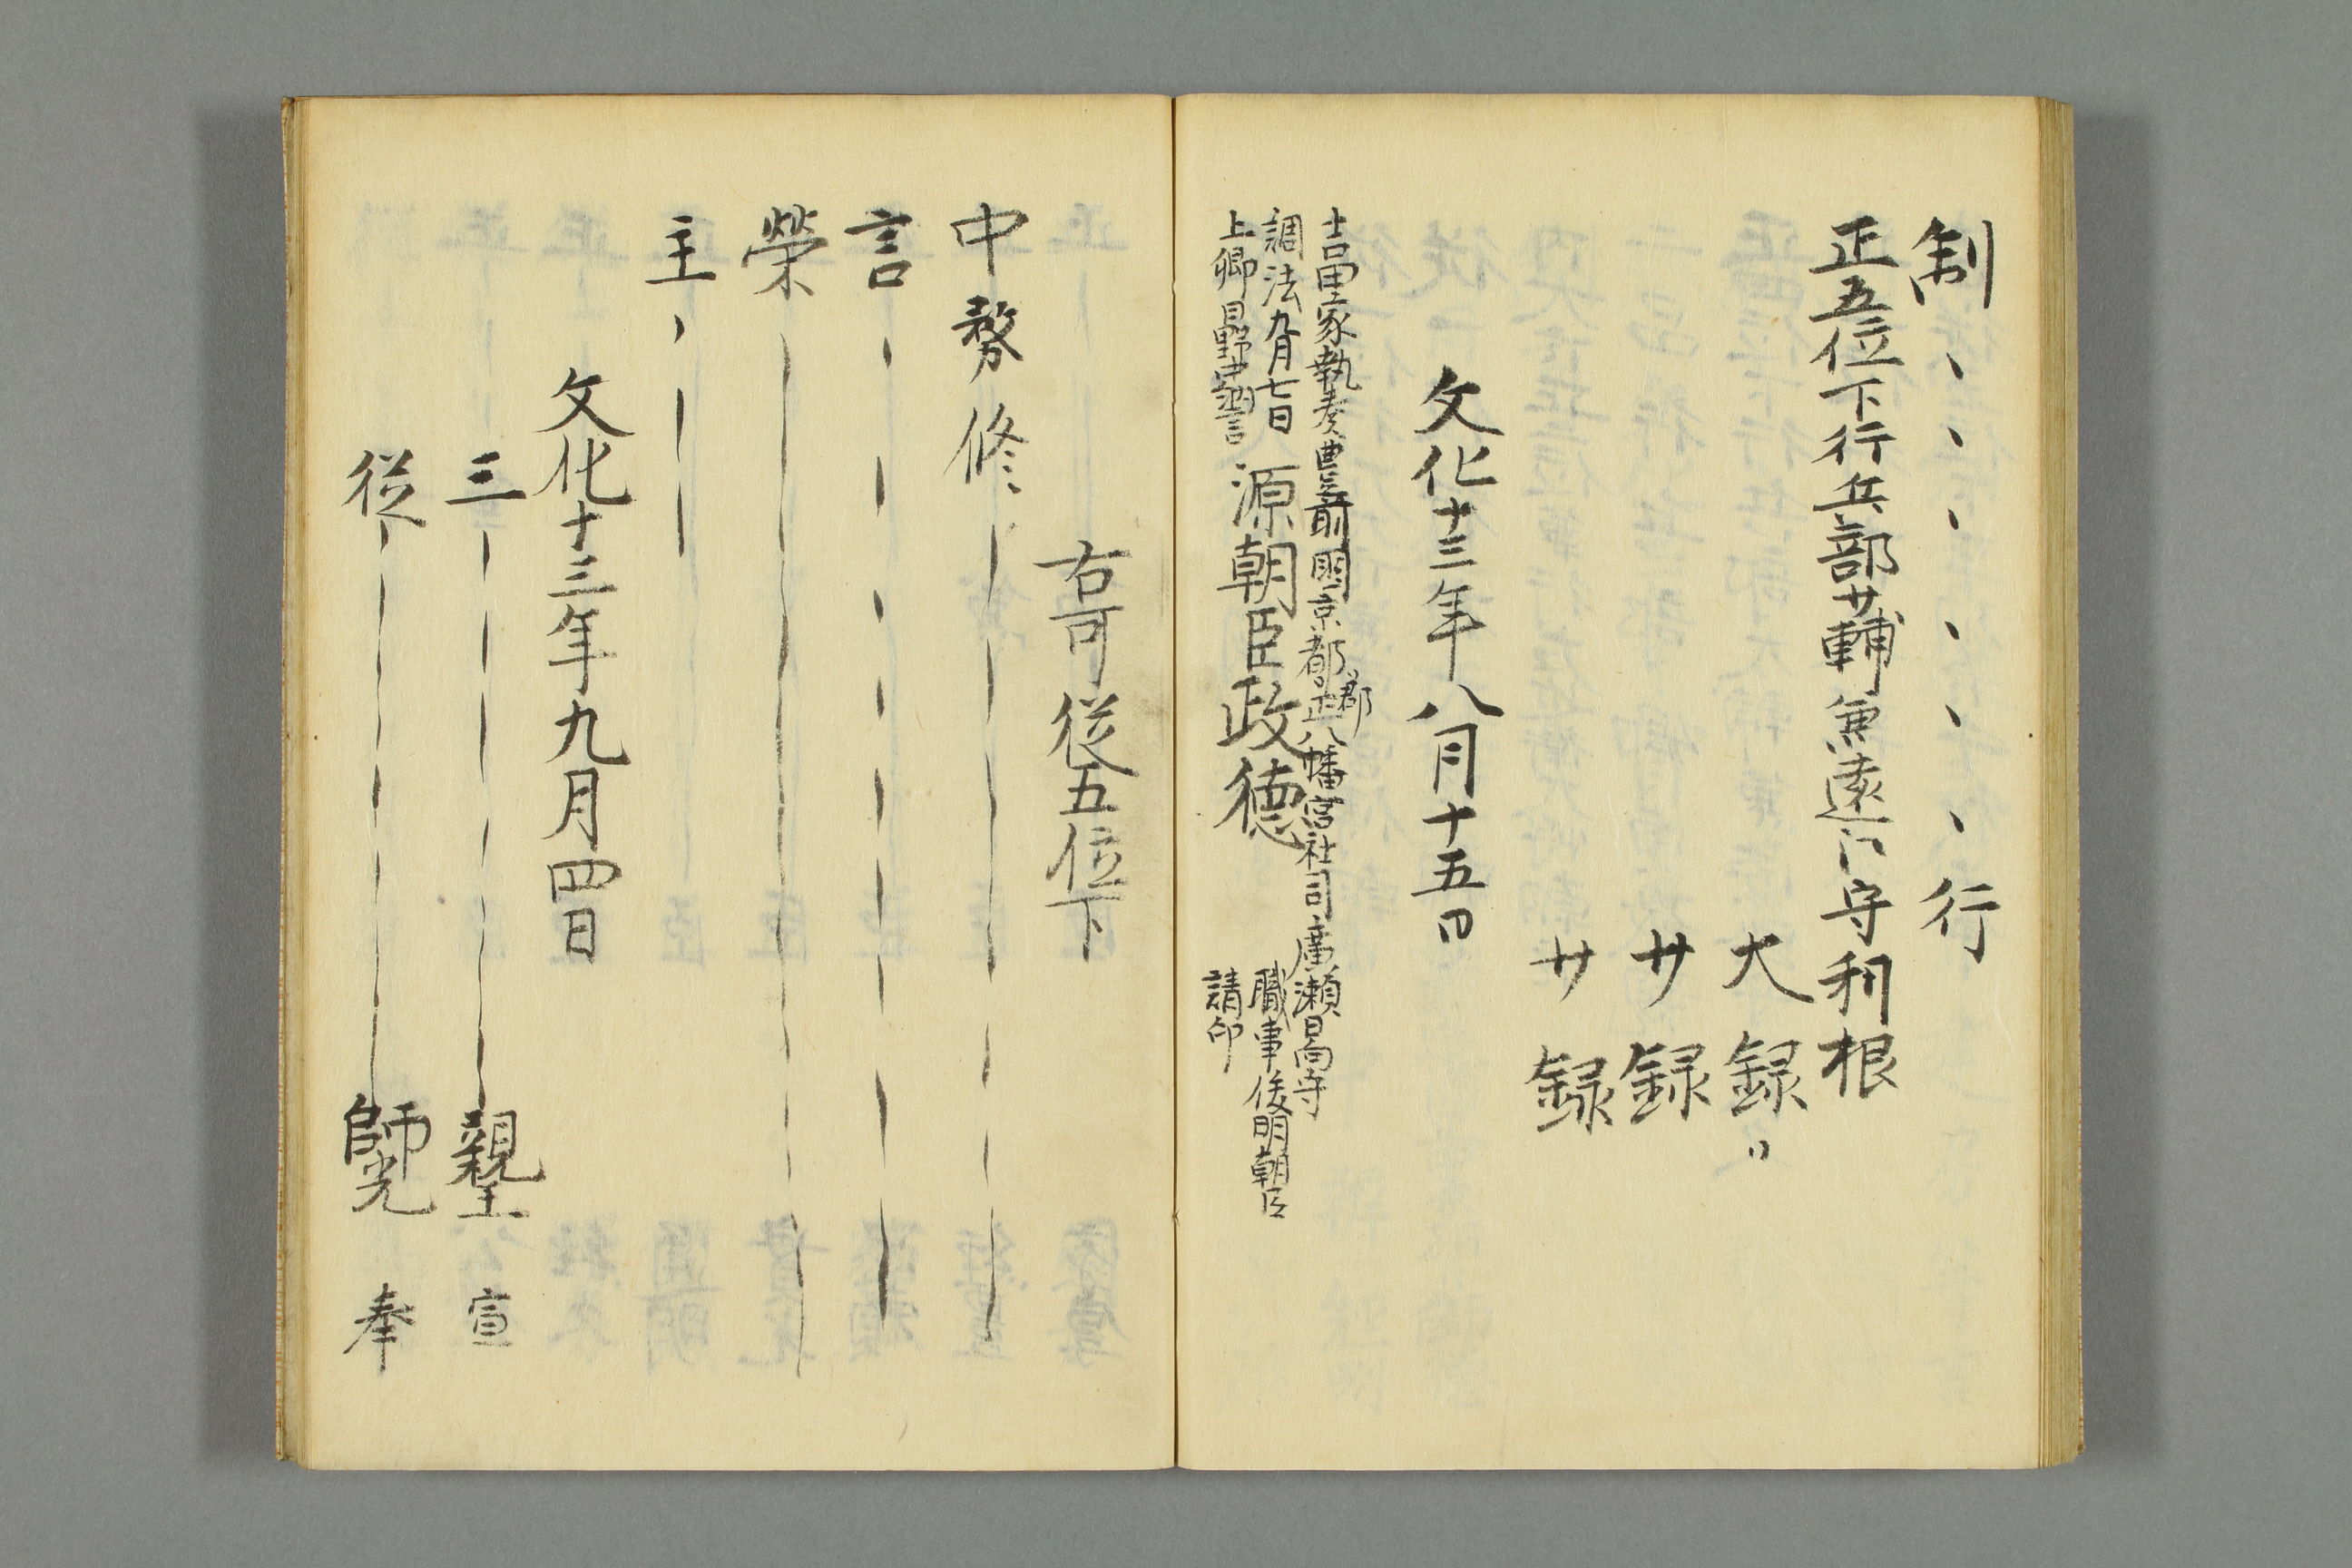 制、、、、、、行
正五位下行兵部廿輔兼遠江守利根
大録〃
廿録
廿録
文化十三年八月十五日
吉田家執奏豊前国京都郡正八幡宮社司廣瀬日向守
調法九月七日
上卿日野中納言
源朝臣政徳
職事俊明朝臣
請印
右可従五位下
中務修、
言、
榮
主、
文化十三年九月四日
三 親王 宣
従 師光 奉